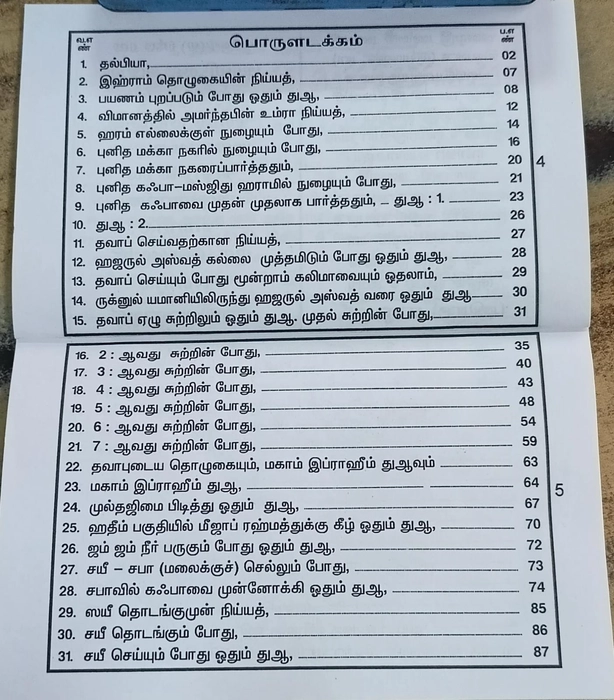 வ.எ
ண்
பொருளடக்கம்
ப.எ
ண்
1. தல்பியா, 02
2. இஹ்ராம் தொழுகையின் நிய்யத், 07
3. பயணம் புறப்படும் போது ஓதும் துஆ, 08
4. விமானத்தில் அமர்ந்தபின் உம்ரா நிய்யத், 12
5. ஹரம் எல்லைக்குள் நுழையும் போது, 14
6. புனித மக்கா நகரில் நுழையும் போது, 16
7. புனித மக்கா நகரைப்பார்த்ததும், 20
8. புனித கஃபா–மஸ்ஜிது ஹராமில் நுழையும் போது, 21
9. புனித கஃபாவை முதன் முதலாக பார்த்ததும், – துஆ : 1. 23
10. துஆ : 2. 26
11. தவாப் செய்வதற்கான நிய்யத், 27
12. ஹஜருல் அஸ்வத் கல்லை முத்தமிடும் போது ஓதும் துஆ, 28
13. தவாப் செய்யும் போது மூன்றாம் கலிமாவையும் ஓதலாம், 29
14. ருக்னுல் யமானியிலிருந்து ஹஜருல் அஸ்வத் வரை ஓதும் துஆ 30
15. தவாப் ஏழு சுற்றிலும் ஓதும் துஆ. முதல் சுற்றின் போது, 31
4
16. 2 : ஆவது சுற்றின் போது, 35
17. 3 : ஆவது சுற்றின் போது, 40
18. 4 : ஆவது சுற்றின் போது, 43
19. 5 : ஆவது சுற்றின் போது, 48
20. 6 : ஆவது சுற்றின் போது, 54
21. 7 : ஆவது சுற்றின் போது, 59
22. தவாபுடைய தொழுகையும், மகாம் இப்ராஹீம் துஆவும் 63
23. மகாம் இப்ராஹீம் துஆ, 64
24. முல்தஜிமை பிடித்து ஓதும் துஆ, 67
25. ஹதீம் பகுதியில் மீஜாப் ரஹ்மத்துக்கு கீழ் ஓதும் துஆ, 70
26. ஜம் ஜம் நீர் பருகும் போது ஓதும் துஆ, 72
27. சயீ – சபா (மலைக்குச்) செல்லும் போது, 73
28. சபாவில் கஃபாவை முன்னோக்கி ஓதும் துஆ, 74
29. ஸயீ தொடங்குமுன் நிய்யத், 85
30. சயீ தொடங்கும் போது, 86
31. சயீ செய்யும் போது ஓதும் துஆ, 87
5